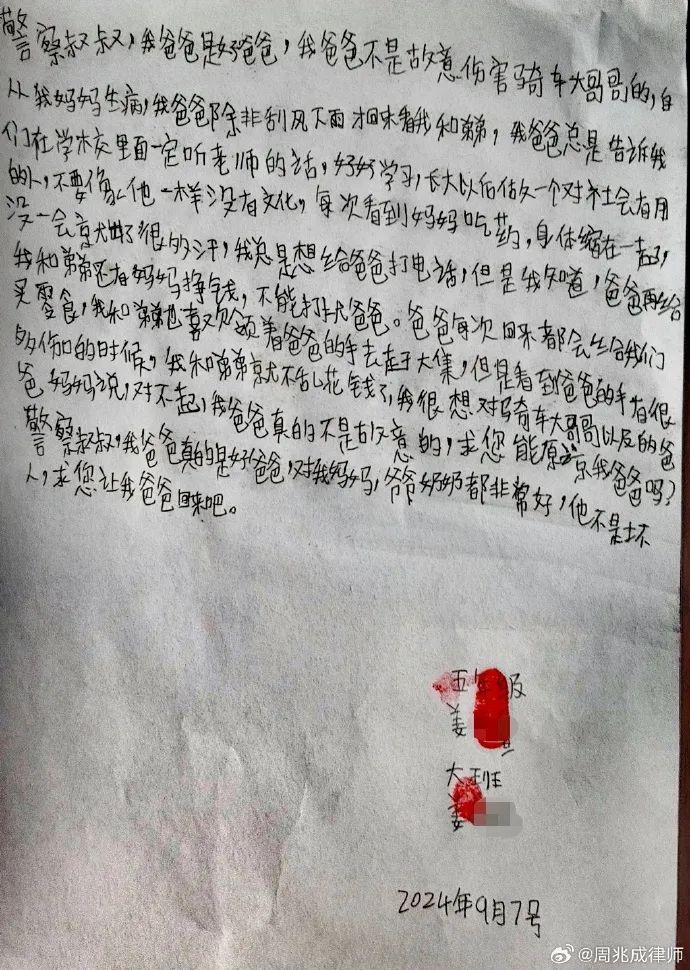 警察叔叔，我爸爸是好爸爸，我爸爸不是故意伤害骑车大哥哥的，自
从我妈妈生病，我爸爸除非刮风下雨才回来看我和弟弟，我爸爸总是告诉我
们在学校里面一定听老师的话，好好学习，长大以后做一个对社会有用
的人，不要像他一样没有文化，每次看到妈妈吃药，身体缩在一起，
没一会就了很多汗，我总是想给爸爸打电话，但是我知道，爸爸再给
我和弟弟还有妈妈挣钱，不能打扰爸爸。爸爸每次回来都会给我们
买零食，我和弟弟也喜欢领着爸爸的手去赶大集，但是看到爸爸的手有很
多伤口的时候，我和弟弟就不乱花钱了，我很想对骑车大哥哥以及的爸
爸妈妈说，对不起，我爸爸真的不是故意的，求您能原谅我爸爸吗？
警察叔叔，我爸爸真的是好爸爸，对我妈妈，爷爷奶奶都非常好，他不是坏
人，求您让我爸爸回来吧。
五年级
姜
大班
姜
2024年9月7号
@周兆成律师